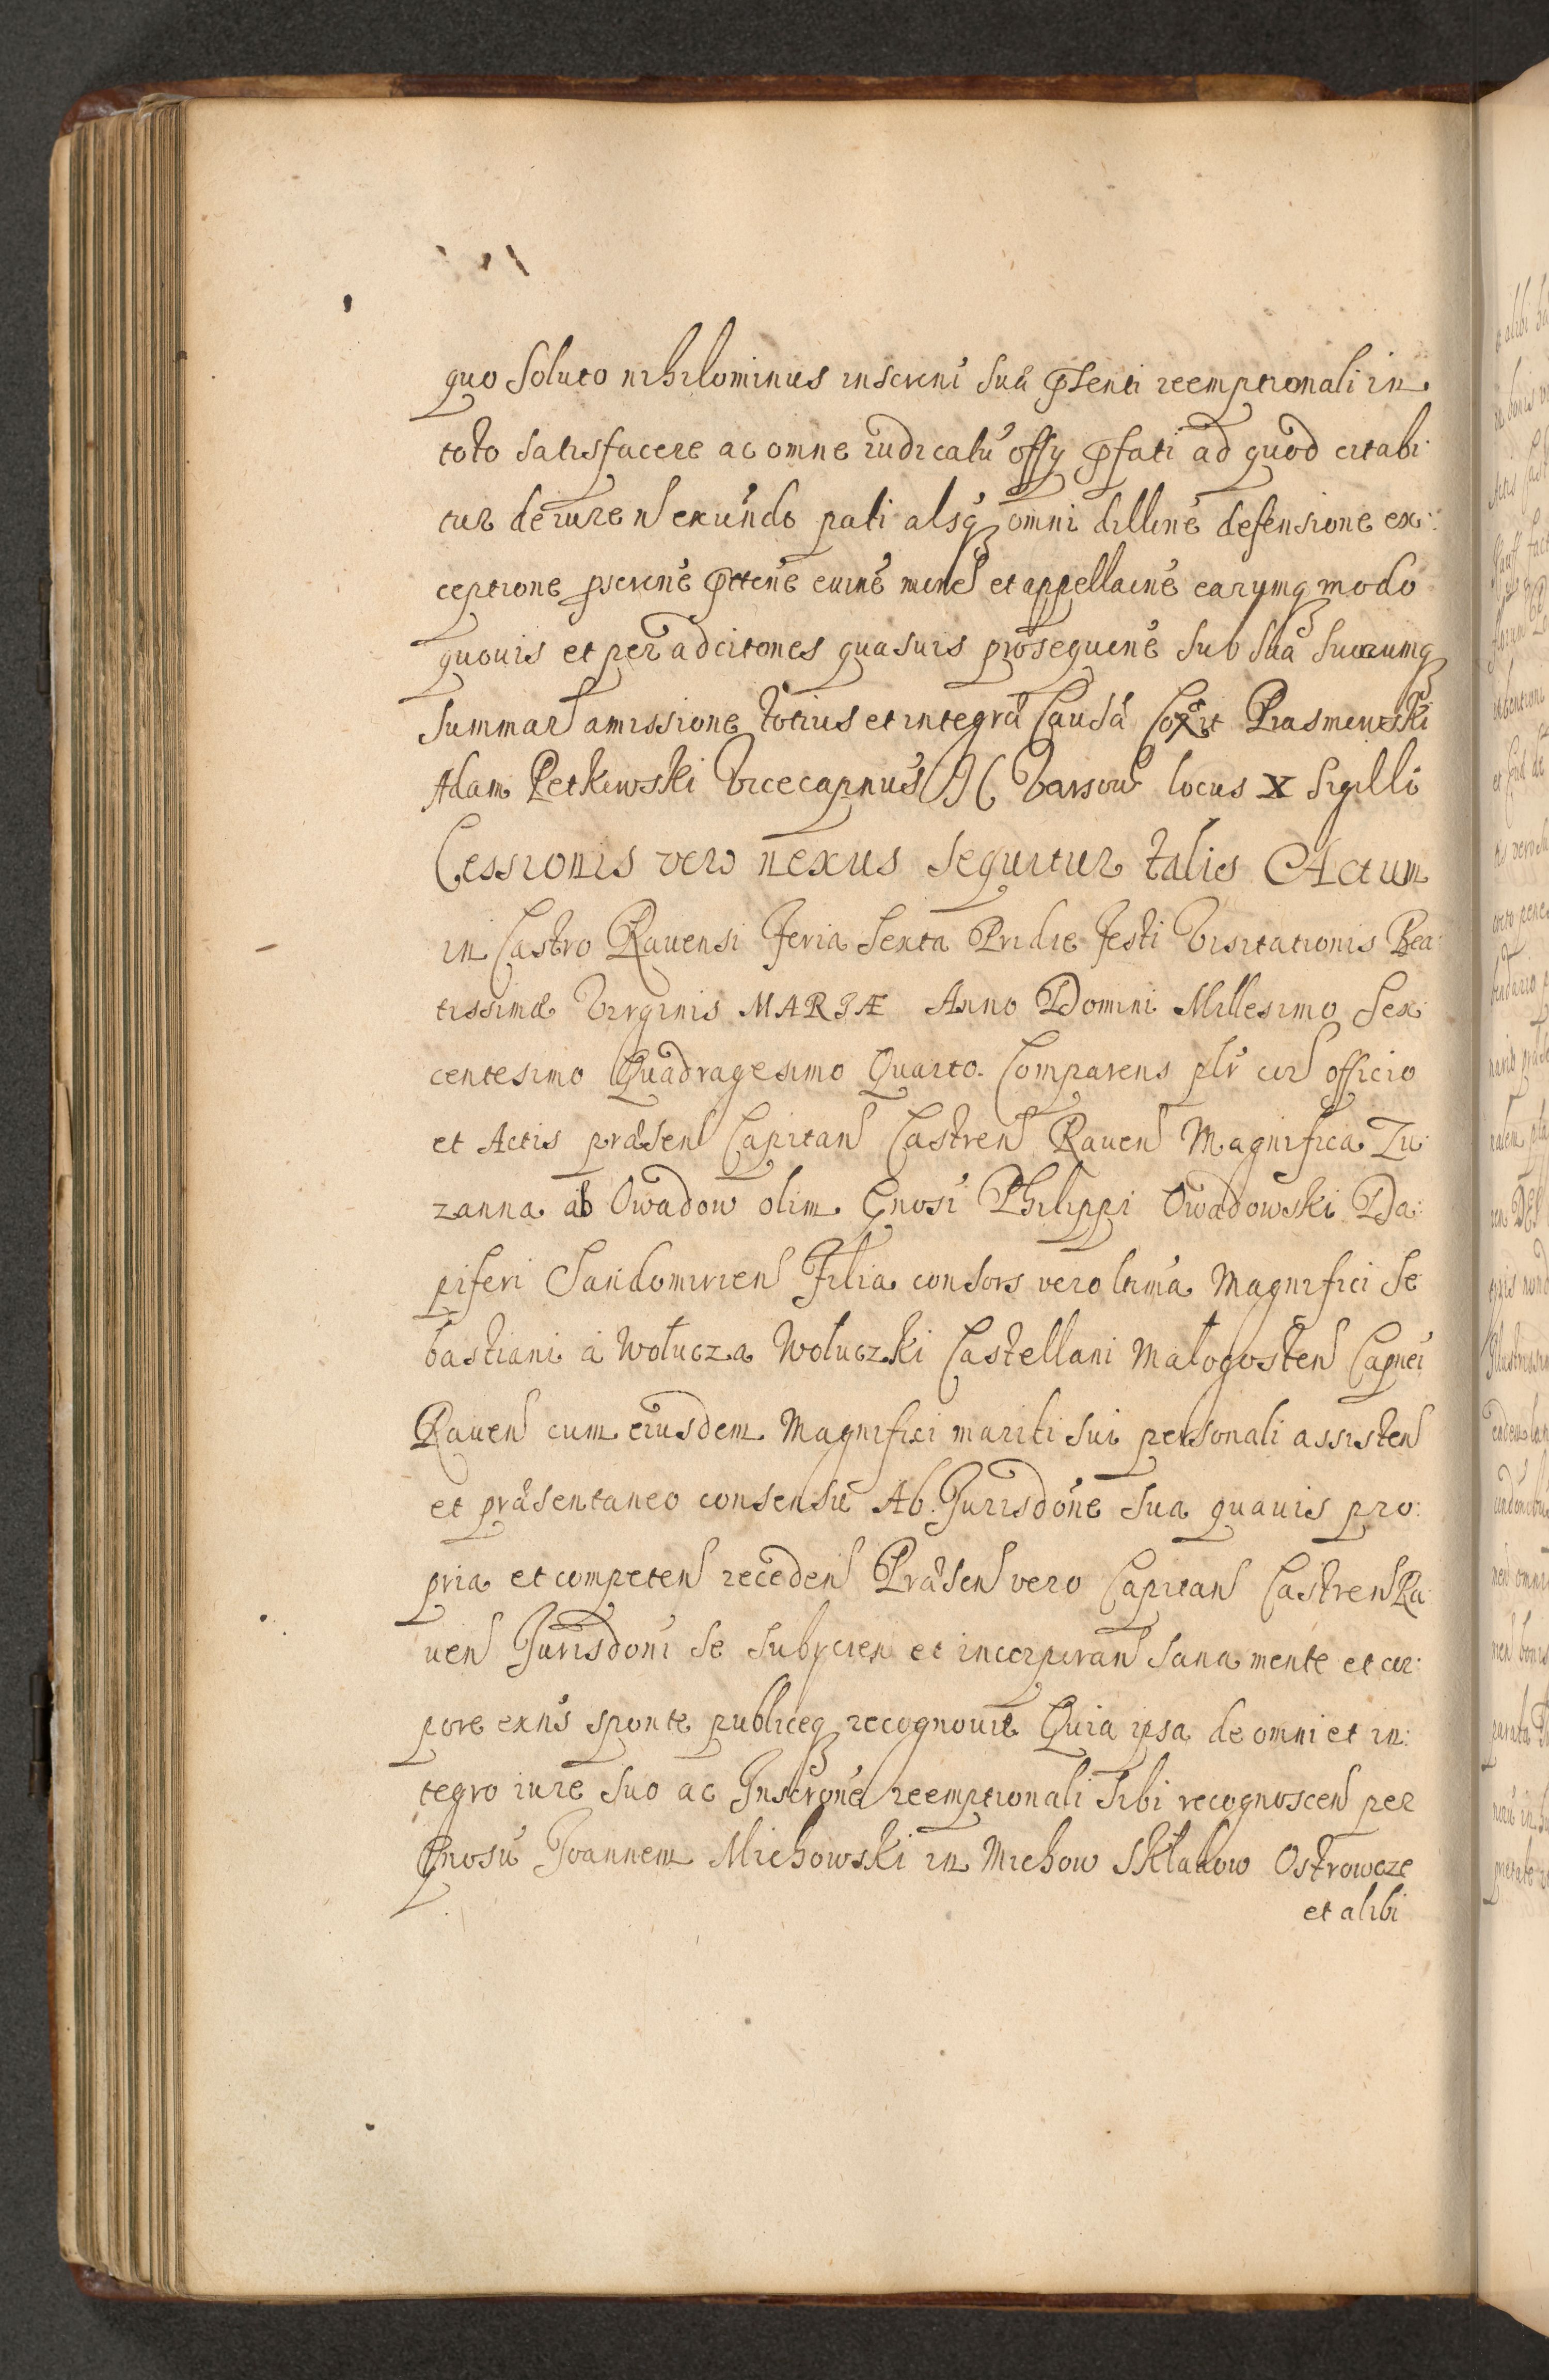 quo Soluto nihilominus inscrni suã pñsenti reemptionali in
toto satisfacere ac omne iudicatũ offÿ pfati ad quod citabi
tur de iure ñ exundo pati absq omni dillne defensione ex:
ceptione pscrne pttene euine mone et appellaine earumq modo
quouis et per ad citones quasuis prosequene sub sua suorumq
summar amissione totius et integra Causa Coxit Prasmewski
Adam Petkowski Vicecapnus Warsow locus X Sigilli
Cessionis vero nexus sequitur talis Actum
in Castro Rauensi Feria Sexta Pridie Festi Visitationis Bea
tissimæ Virginis MARIÆ Anno Domini Millesimo Sex
centesimo Quadragesimo Quarto. Comparens plr cor officio
et Actis præsen Capitan Castren Rauen Magnifica Zu
zanna ab Owadow olim Gnosi Philippi Owadowski Da:
piferi Sandomirien Filia consors vero ltima Magnifici Se
bastiani á Wołucza Wołuczki Castellani Małogosten Capnei
Rauen cum eiusdem Magnifici mariti sui personali assisten
et præsentaneo consensu Ab Jurisdone sua quauis pro:
pria et competen receden Præsen vero Capitan Castren Ra
uen Jurisdoni se subÿcien et incorporan sana mente et cor:
pore exns sponte publiceq recognouit Quia ipsa de omni et in:
tegro iure suo ac Inscrone reemptionali sibi recognoscen per
Gnosũ Joannem Michowski in Michow Skladow Ostrowcze
et alibi